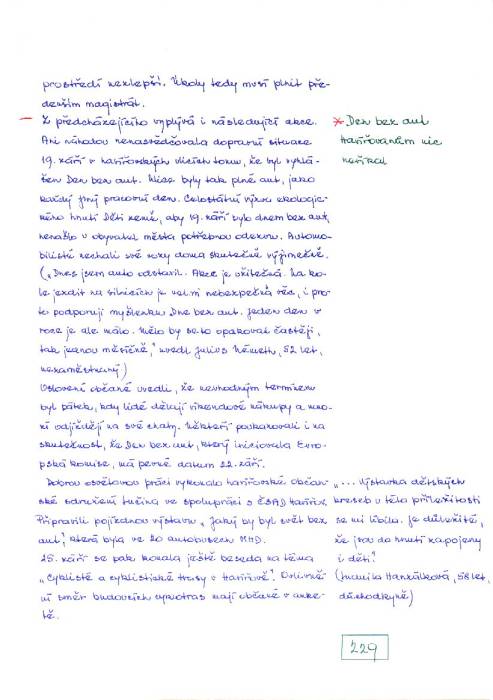 prostředí nezlepší. Úkoly tedy musí plnit pře-
devším magistrát.
Z předcházejícího vyplývá i následující akce.
Ani náhodou nenasvědčovala dopravní situace
19. září v havířovských ulicích tomu, že byl vyhlá-
šen Den bez aut. Ulice byly tak plné aut, jako
každý jiný pracovní den. Celostátní výzva ekologic-
kého hnutí Děti země, aby 19. září bylo dnem bez aut,
nenašlo u obyvatel města potřebnou odezvu. Automo-
bilisté nechali své vozy doma skutečně výjimečně.
(„Dnes jsem auto odstavil. Akce je užitečná. Na ko-
le jezdit na silnicích je velmi nebezpečná věc, i pro-
to podporuji myšlenku Dne bez aut. Jeden den v
roce je ale málo. Mělo by se to opakovat častěji,
tak jednou měsíčně," uvedl Julius Németh, 52 let,
nezaměstnaný)
Oslovení občané uvedli, že nevhodným termínem
byl pátek, kdy lidé dělají víkendové nákupy a mno-
zí odjíždějí na své chaty. Někteří poukazovali i na
skutečnost, že Den bez aut, který iniciovala Evro-
pská komise, má pevné datum 22. září.
Dobrou osvětovou práci vykonalo havířovské občan-
ské sdružení Lučina ve spolupráci s ČSAD Havířov.
Připravili pojízdnou výstavu „Jaký by byl svět bez
aut", která byla ve 20 autobusech MHD.
25. září se pak konala ještě beseda na téma
„Cyklisté a cyklistické trasy v Havířově". Ovlivně-
ní směr budoucích cyklotras mají občané v anke-
tě.
* Den bez aut
Havířovanům nic
neříkal
„... Výstavka dětských
kreseb u této příležitosti
se mi líbila. Je důležité,
že jsou do hnutí zapojeny
i děti."
(Ludmila Hanzálková, 58 let,
důchodkyně)
229